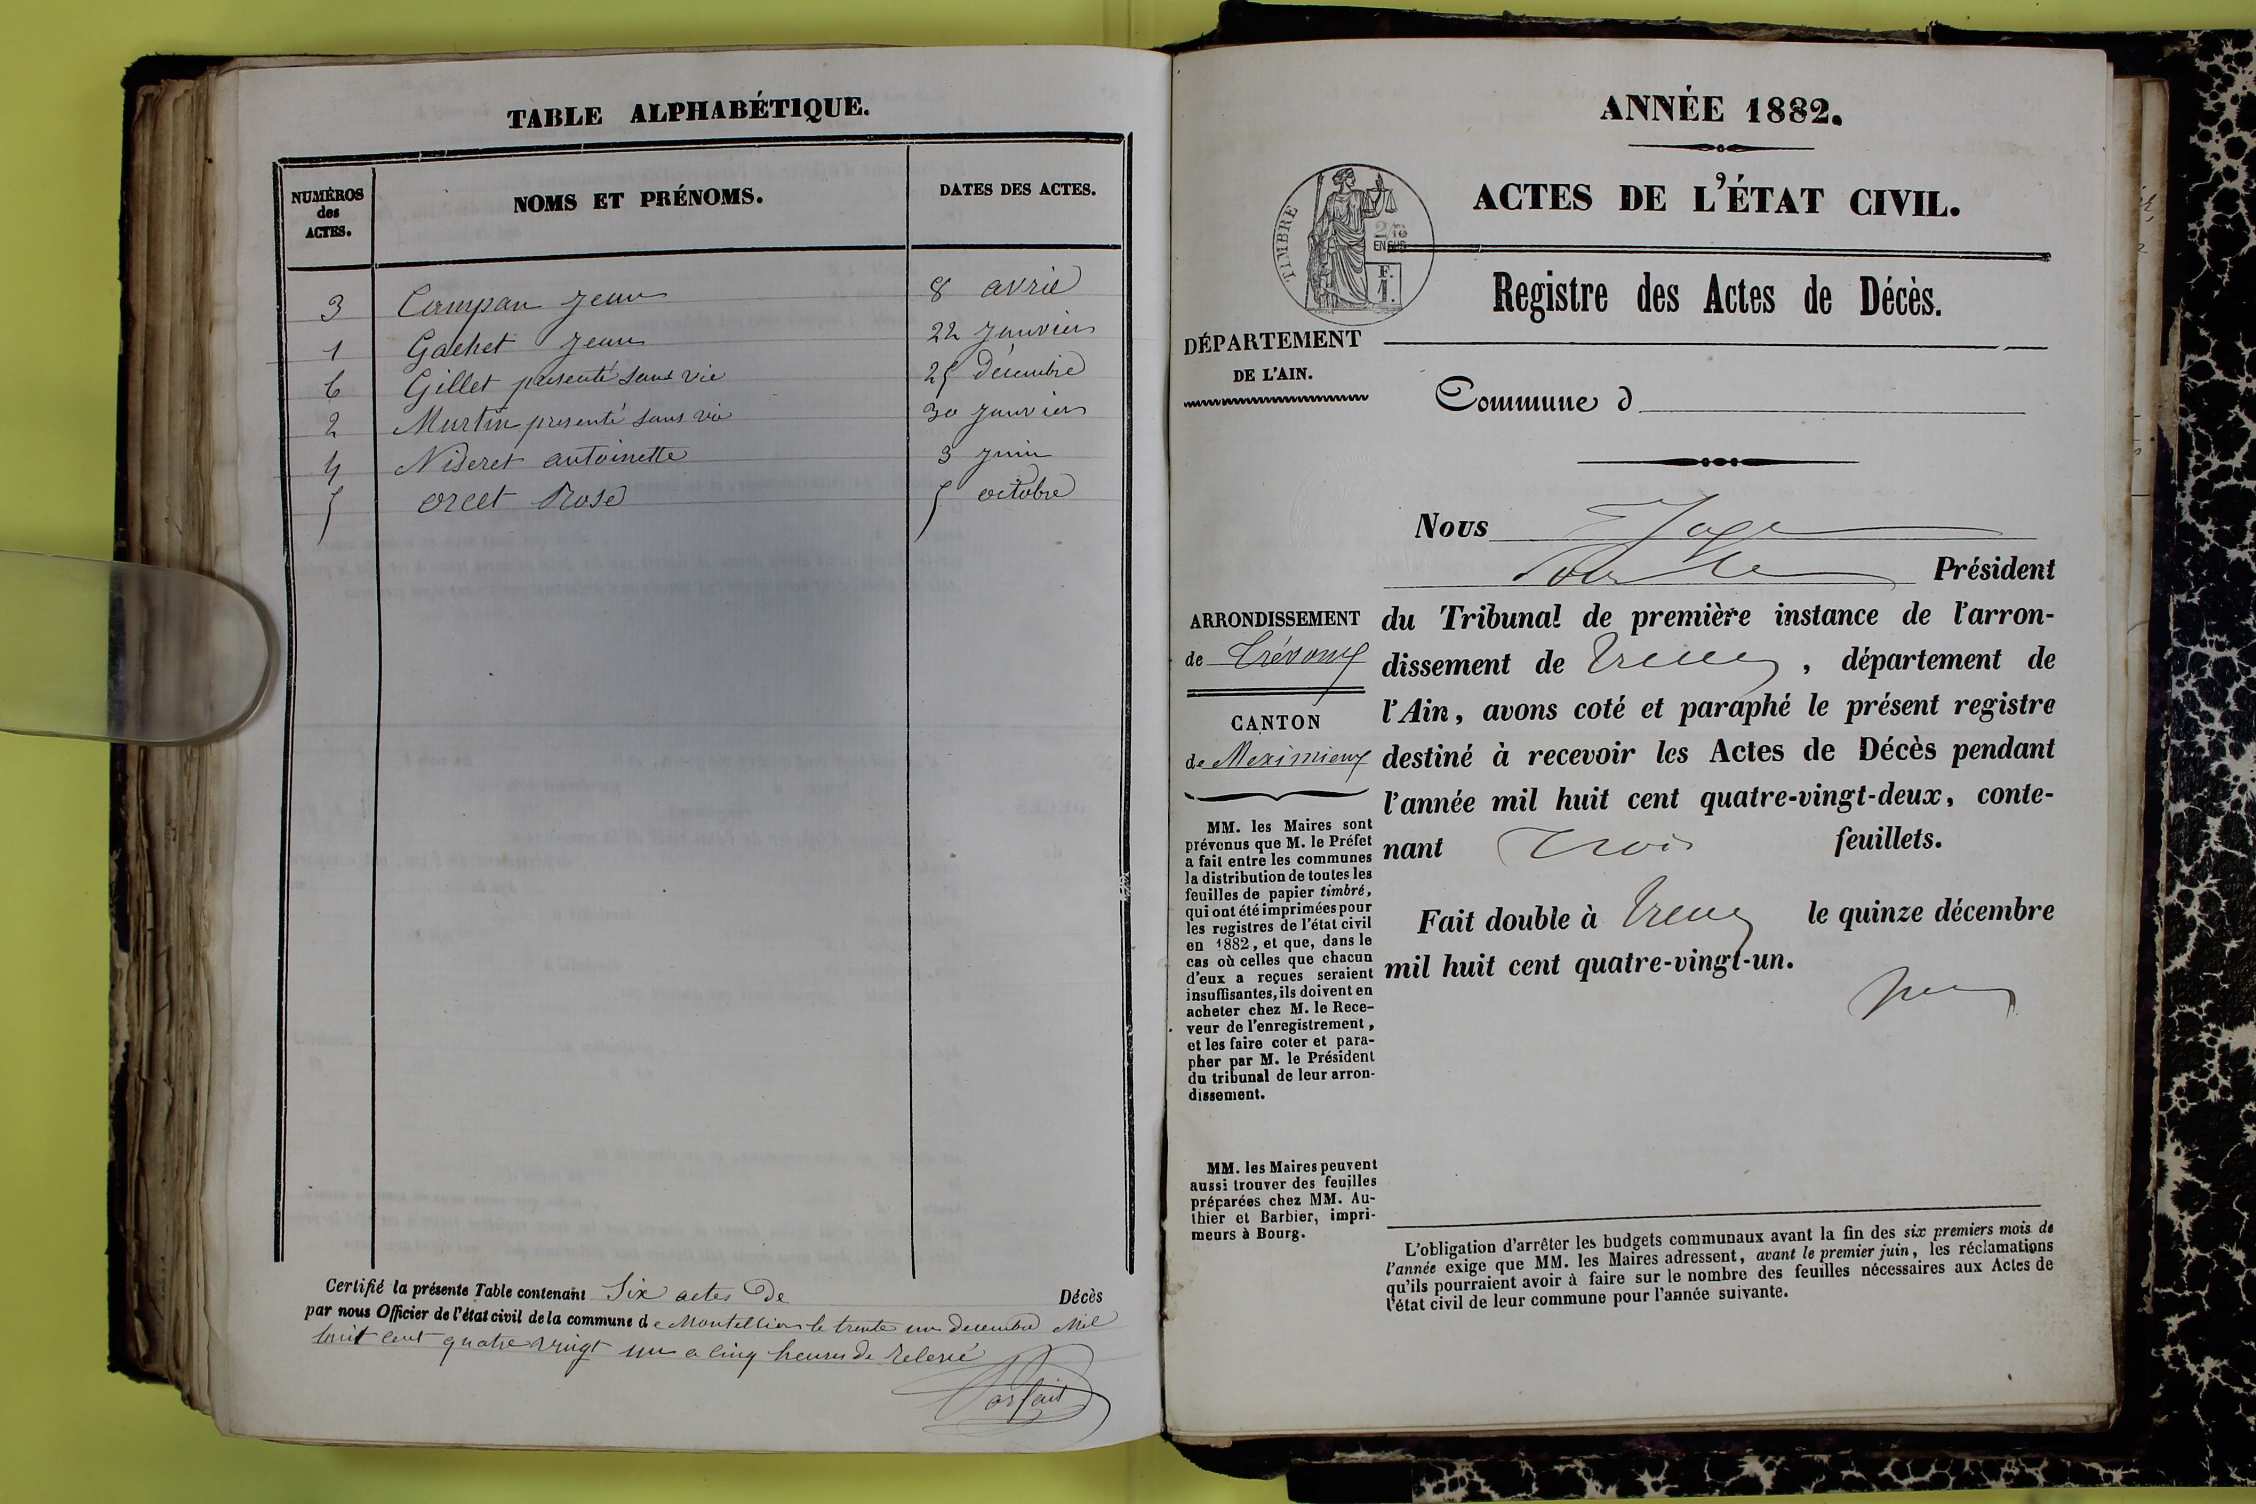 TABLE ALPHABÉTIQUE.
NUMÉROS des ACTES.
NOMS ET PRÉNOMS.
DATES DES ACTES.
3 Campan Jean 8 avril
1 Gachet Jean 22 Janvier
6 Gillet présenté sans vie 25 décembre
2 Martin presenté sans vie 30 Janvier
4 Nideret antoinette 3 Juin
5 orcet Rose 5 octobre
Certifié la présente Table contenant Six actes de Décès
par nous Officier de l'état civil de la commune de Montellier le trente un decembre Mil
huit cent quatre vingt un a cinq heures de relevé
Parfait
ANNÉE 1882.
ACTES DE L'ÉTAT CIVIL.
TIMBRE
2/10
EN SUS
F.
1.
Registre des Actes de Décès.
DÉPARTEMENT
DE L'AIN.
Commune d
Nous
Président
ARRONDISSEMENT
de Trévoux
CANTON
de Meximieux
du Tribunal de première instance de l'arron-
dissement de , département de
l'Ain, avons coté et paraphé le présent registre
destiné à recevoir les Actes de Décès pendant
l'année mil huit cent quatre-vingt-deux, conte-
nant Trois feuillets.
Fait double à le quinze décembre
mil huit cent quatre-vingt-un.
MM. les Maires sont
prévenus que M. le Préfet
a fait entre les communes
la distribution de toutes les
feuilles de papier timbré,
qui ont été imprimées pour
les registres de l'état civil
en 1882, et que, dans le
cas où celles que chacun
d'eux a reçues seraient
insuffisantes, ils doivent en
acheter chez M. le Rece-
veur de l'enregistrement,
et les faire coter et para-
pher par M. le Président
du tribunal de leur arron-
dissement.
MM. les Maires peuvent
aussi trouver des feuilles
préparées chez MM. Au-
thier et Barbier, impri-
meurs à Bourg.
L'obligation d'arrêter les budgets communaux avant la fin des six premiers mois de
l'année exige que MM. les Maires adressent, avant le premier juin, les réclamations
qu'ils pourraient avoir à faire sur le nombre des feuilles nécessaires aux Actes de
l'état civil de leur commune pour l'année suivante.